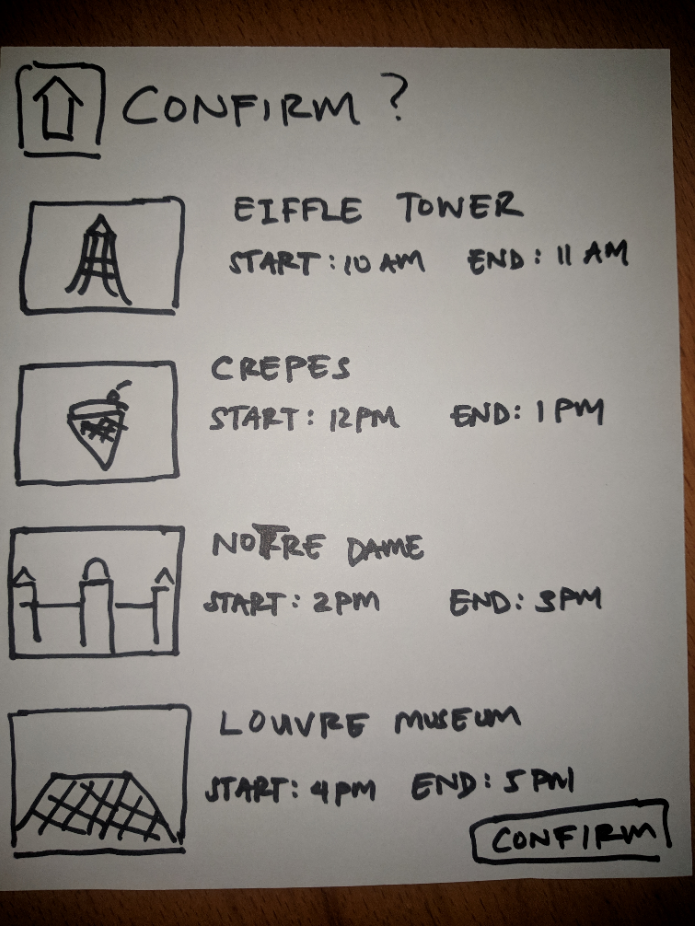 CONFIRM ?
EIFFLE TOWER
START : 10 AM END : 11 AM
CREPES
START : 12PM END : 1 PM
NOTRE DAME
START : 2PM END : 3PM
LOUVRE MUSEUM
START : 4PM END : 5 PM
CONFIRM